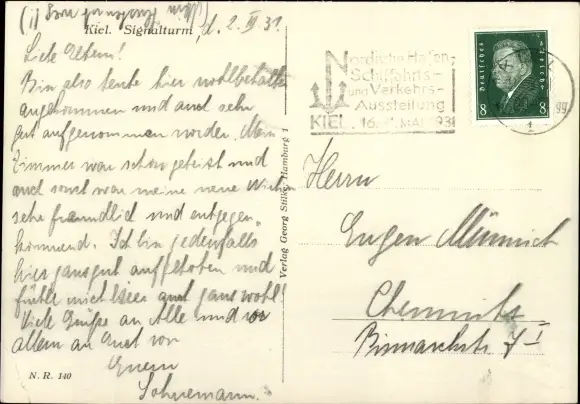 Kiel. Signalturm, d. 2. III 31.
Liebe Eltern!
Bin also heute hier wohlbehalten
angekommen und auch sehr
gut aufgenommen worden. Mein
Zimmer war schön geheizt und
auch sonst war meine neue Wirtin
sehr freundlich und entgegen-
kommend. Ich bin jedenfalls
hier ganz gut aufgehoben und
fühle mich hier auch ganz wohl!
Viele Grüße an Alle und vor
allem an Euch von
Euern
Sohnemann.
N. R. 140
Verlag Georg Stilke, Hamburg 1
Nordische Hafen-,
Schiffahrts-
und Verkehrs-
Ausstellung
KIEL, 16. MAI 1931
Deutsches Reich
8 8
Herrn
Eugen Münnich
Chemnitz
Bismarckstr. 7 I